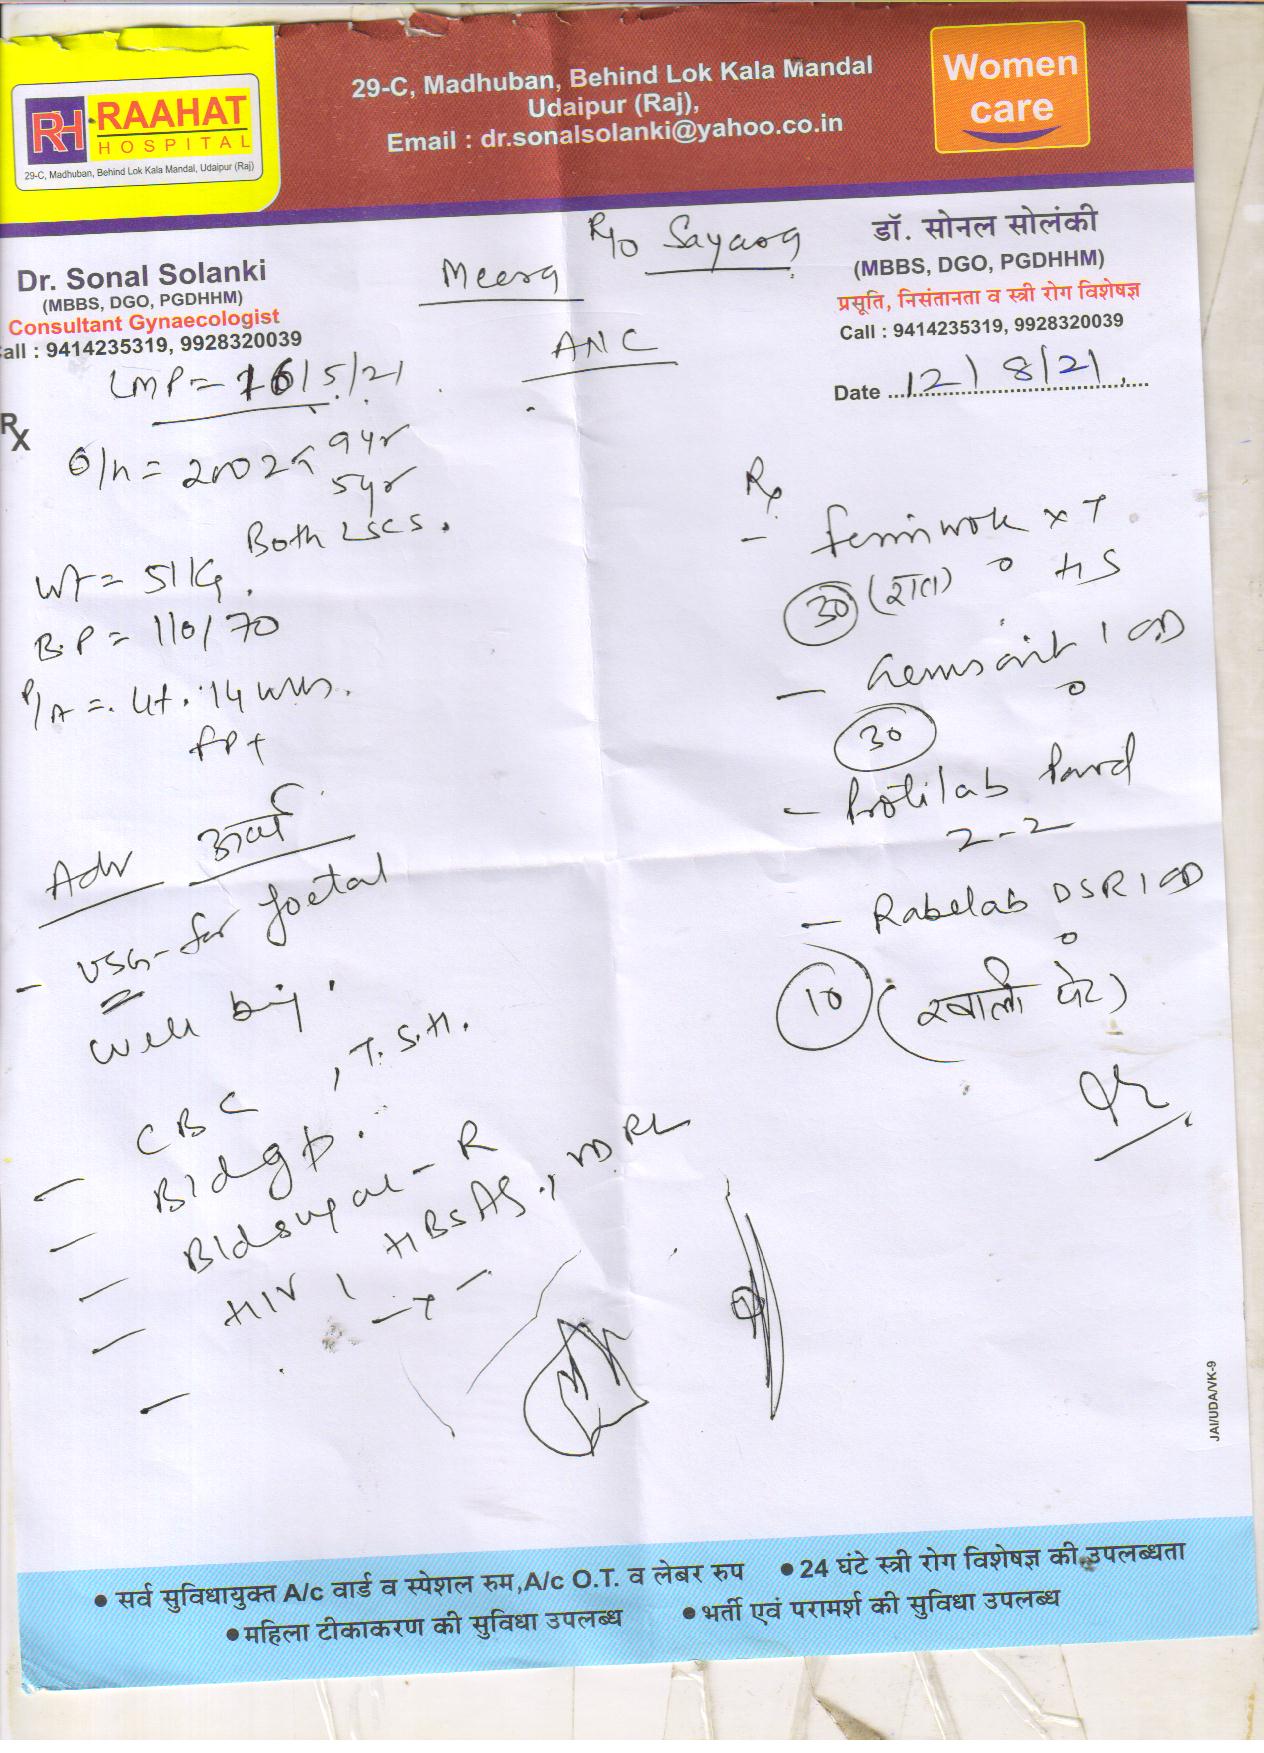 RH RAAHAT
HOSPITAL
29-C, Madhuban, Behind Lok Kala Mandal, Udaipur (Raj)
29-C, Madhuban, Behind Lok Kala Mandal
Udaipur (Raj),
Email : dr.sonalsolanki@yahoo.co.in
Women
care
Dr. Sonal Solanki
(MBBS, DGO, PGDHHM)
Consultant Gynaecologist
all : 9414235319, 9928320039
R/o Sayara
Meera
ANC
डॉ. सोनल सोलंकी
(MBBS, DGO, PGDHHM)
प्रसूति, निसंतानता व स्त्री रोग विशेषज्ञ
Call : 9414235319, 9928320039
Date 12/8/21
LMP = 16/5/21
Rx
O/h = 9yr
5yr
Both LSCS.
Wt = 51 KG.
B.P = 110/70
P/A = Ut. 14 wks.
Adv
- USG - for foetal
well being
- CBC, T.S.H.
- Bldgp.
- Bldsugar - R
- HIV, HBsAG, VDRL
Rx
- x T
30 (रात) HS
- 1 OD
30
- Protilab Powd
2-2
- Rabelab DSR 1 OD
10 (खाली पेट)
JAI/UDA/VK-9
• सर्व सुविधायुक्त A/c वार्ड व स्पेशल रुम,A/c O.T. व लेबर रुप • 24 घंटे स्त्री रोग विशेषज्ञ की उपलब्धता
• महिला टीकाकरण की सुविधा उपलब्ध • भर्ती एवं परामर्श की सुविधा उपलब्ध